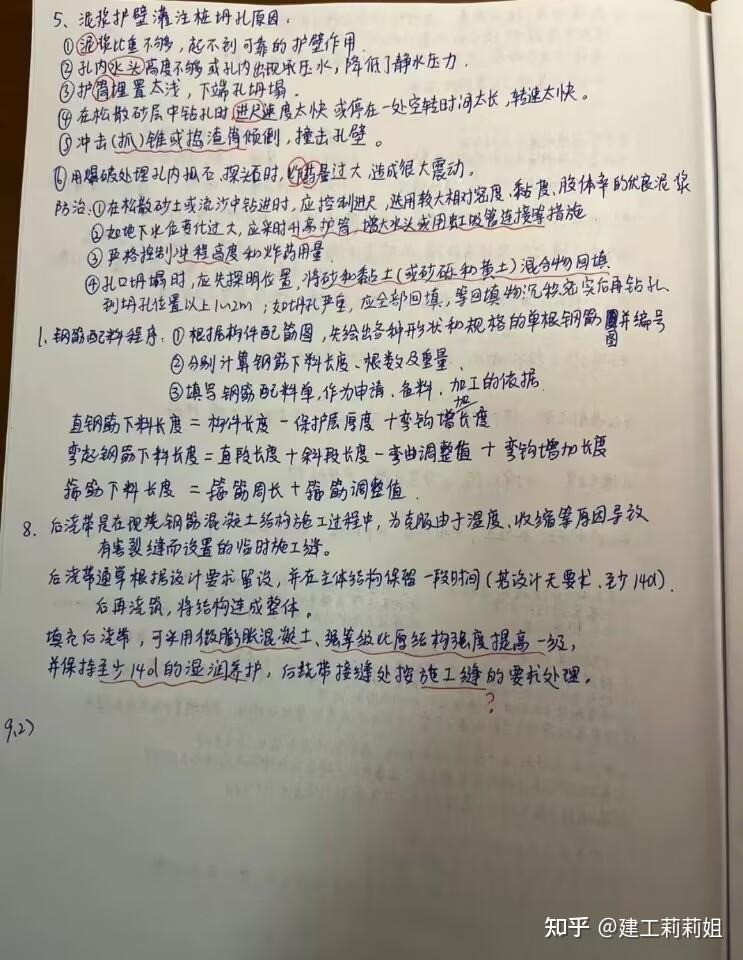 5、泥浆护壁灌注桩坍孔原因：
①泥浆比重不够，起不到可靠的护壁作用.
②孔内水头高度不够或孔内出现承压水，降低了静水压力.
③护筒埋置太浅，下端孔坍塌.
④在松散砂层中钻孔时，进尺速度太快或停在一处空转时间太长，转速太快。
⑤冲击(抓)锥或掏渣筒倾倒，撞击孔壁。
⑥用爆破处理孔内孤石、探头石时，炸药量过大，造成很大震动。
防治：①在松散砂土或流沙中钻进时，应控制进尺，选用较大相对密度、黏度、胶体率的优良泥浆
②如地下水位变化过大，应采取升高护筒，增大水头或用虹吸管连接等措施.
③严格控制冲程高度和炸药用量.
④孔口坍塌时，应先探明位置，将砂和黏土(或砂砾和黄土)混合物回填
到坍孔位置以上1~2m；如坍孔严重，应全部回填，等回填物沉积密实后再钻孔.
1、钢筋配料程序：①根据构件配筋图，先绘出各种形状和规格的单根钢筋图并编号
图
②分别计算钢筋下料长度、根数及重量.
③填写钢筋配料单，作为申请、备料、加工的依据.
加
直钢筋下料长度 = 构件长度 - 保护层厚度 + 弯钩增长度
弯起钢筋下料长度 = 直段长度 + 斜段长度 - 弯曲调整值 + 弯钩增加长度
箍筋下料长度 = 箍筋周长 + 箍筋调整值.
8、后浇带是在现浇钢筋混凝土结构施工过程中，为克服由于温度、收缩等原因导致
有害裂缝而设置的临时施工缝。
后浇带通常根据设计要求留设，并在主体结构保留一段时间(若设计无要求、至少14d).
后再浇筑，将结构连成整体。
填充后浇带，可采用微膨胀混凝土、强等级比原结构强度提高一级，
并保持至少14d的湿润养护，后浇带接缝处按施工缝的要求处理。
?
9、2)
知乎 @建工莉莉姐